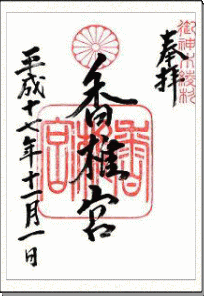 御神木綾杉
奉拝
香椎宮
香椎宮
平成十七年十一月一日